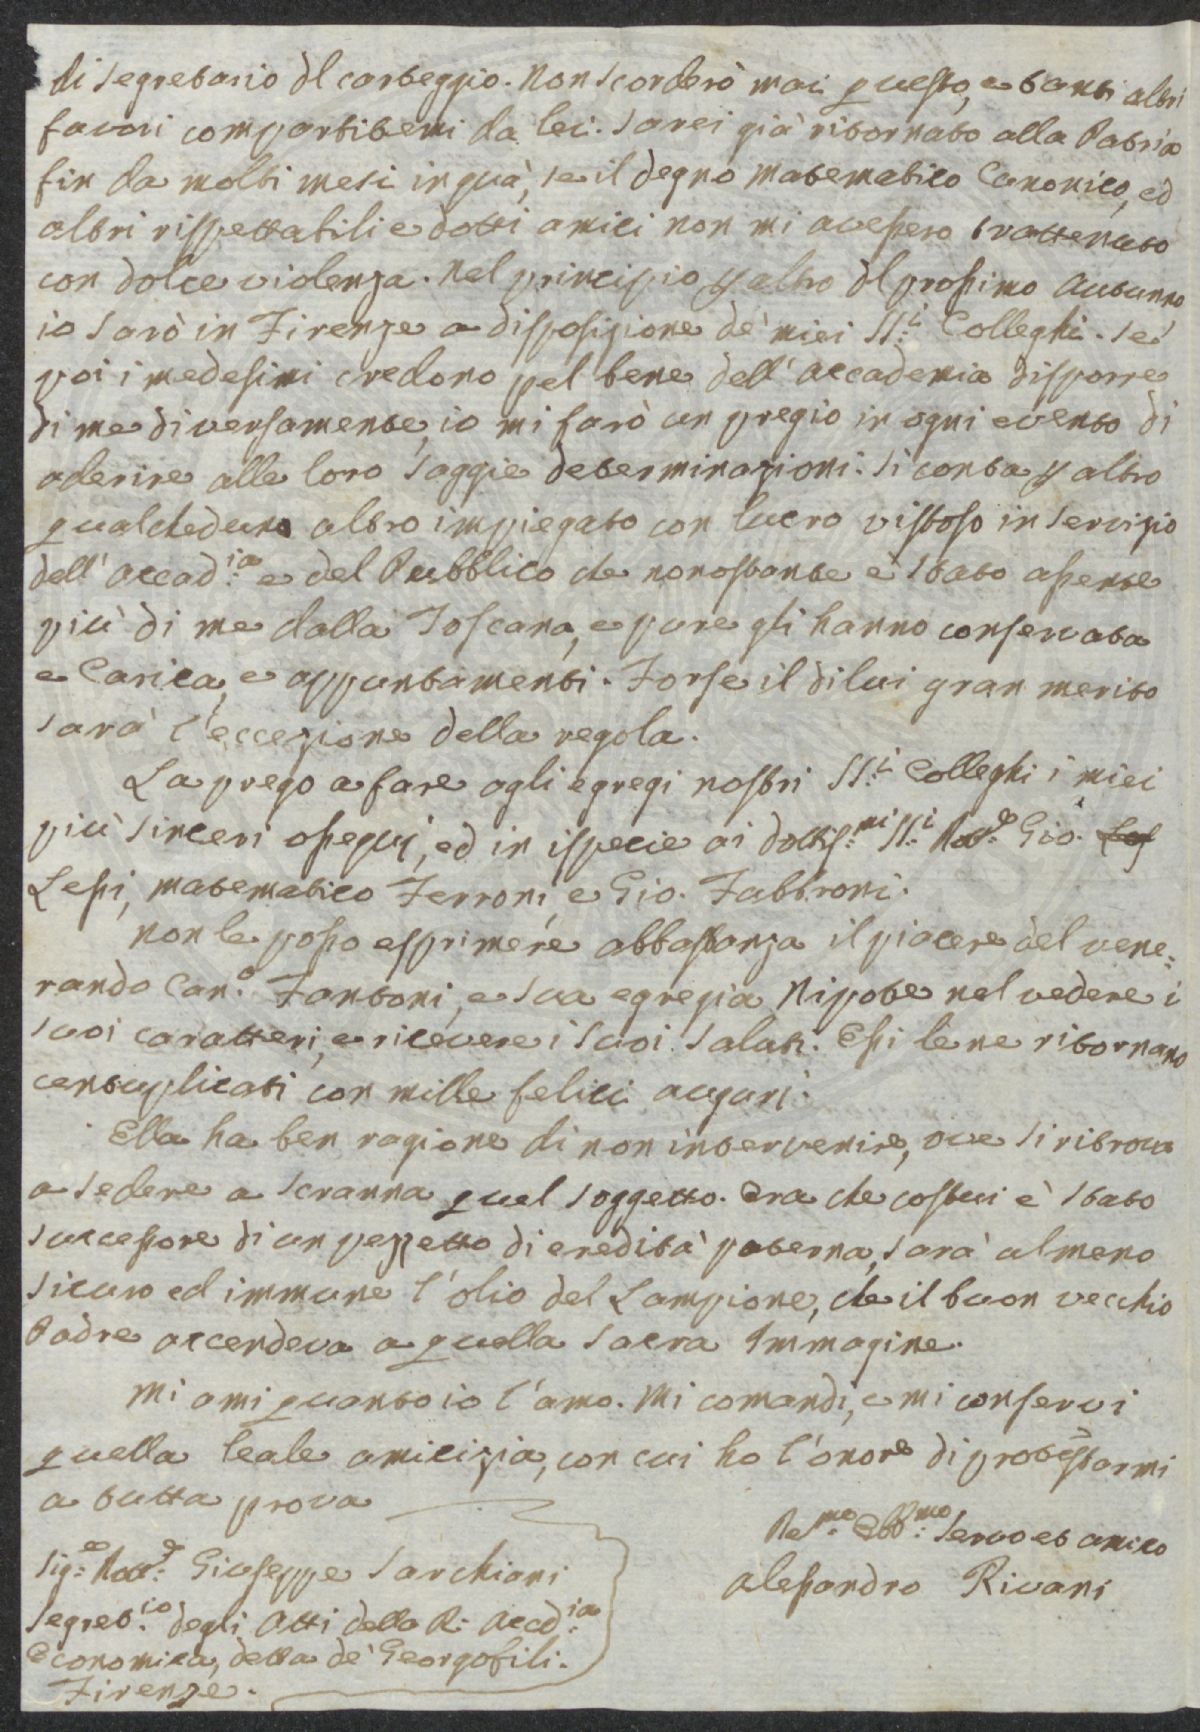 di segretario del carteggio. Non scorderò mai questo, e tanti altri
favori compartitemi da lei. Sarei già ritornato alla Patria
fin da molti mesi in quà, se il degno matematico Canonico, ed
altri rispettabili e dotti amici non mi avessero trattenuto
con dolce violenza. Nel principio p altro del prossimo Autunno
io sarò in Firenze a disposizione de' miei SS.i Colleghi. Se
poi i medesimi credono pel bene dell' Accademia disporre
di me diversamente, io mi farò un pregio in ogni evento di
aderire alle loro saggie determinazioni. Si conta p altro
qualcheduno altro impiegato con lucro vistoso in servizio
dell' Accad.ia e del Pubblico che nonostante è stato assente
più di me dalla Toscana, e pure gli hanno conservata
e Carica, e appuntamenti. Forse il di lui gran merito
sarà l'eccezione della regola.
La prego a fare agli egregi nostri SS.i Colleghi i miei
più sinceri ossequj, ed in ispecie ai dottiss.mi SS.i Dott.e Gio. Les
Lessi, matematico Ferroni, e Gio. Fabbroni.
Non le posso esprimere abbastanza il piacere del vene=
rando Can.o Fantoni, e sua egregia Nipote nel vedere i
suoi caratteri, e ricevere i suoi saluti. Essi le ne ritornano
centuplicati con mille felici augurj.
Ella ha ben ragione di non intervenire, ove si ritrova
a sedere a scranna quel soggetto. Ora che costui è stato
successore di un pezzetto di eredità paterna, sarà almeno
sicuro ed immune l'olio del Lampione, che il buon vecchio
Padre accendeva a quella sacra Immagine.
Mi ami quanto io l'amo. Mi comandi, e mi conservi
quella leale amicizia, con cui ho l'onore di protestarmi
a tutta prova
De.mo Obb.mo Servo et amico
Alessandro Rivani
Sig.e Dott.e Giuseppe Sarchiani
Segret.io degli Atti della R. Accd.ia
Economica, detta de' Georgofili.
Firenze.